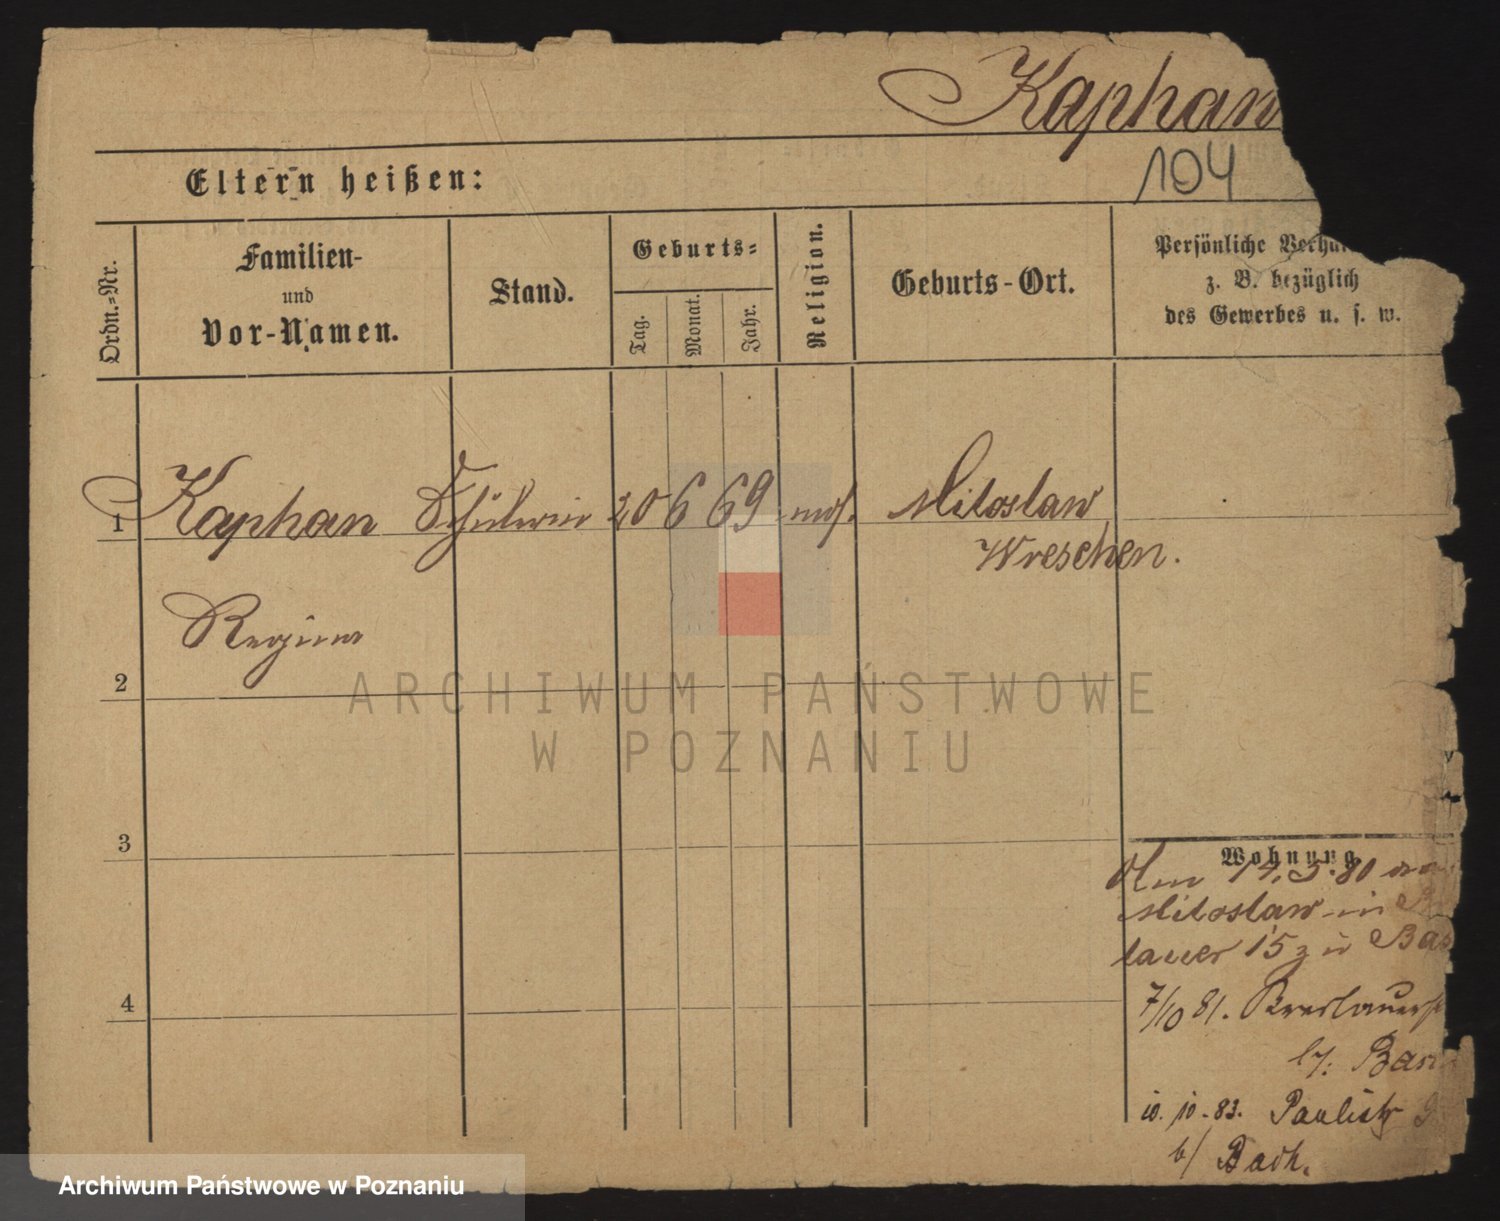 Kaphan
104
Eltern heißen:
Ordn.-Nr.
Familien-
und
Vor-Namen.
Stand.
Geburts-
Tag.
Monat.
Jahr.
Religion.
Geburts-Ort.
Persönliche Verhä
z. B. bezüglich
des Gewerbes u. s. w.
1 Kaphan Schülerin 20 6 69 mos. Miloslaw
Wreschen.
Regina
2
3
4
Wohnung
Am 14.5.80 von
Miloslaw in
lauer 15 zu Bas
7/10 81. Breslauerst
b/: Bas
10. 10. 83. Paulistr
b/ Bach.
ARCHIWUM PAŃSTWOWE
W POZNANIU
Archiwum Państwowe w Poznaniu